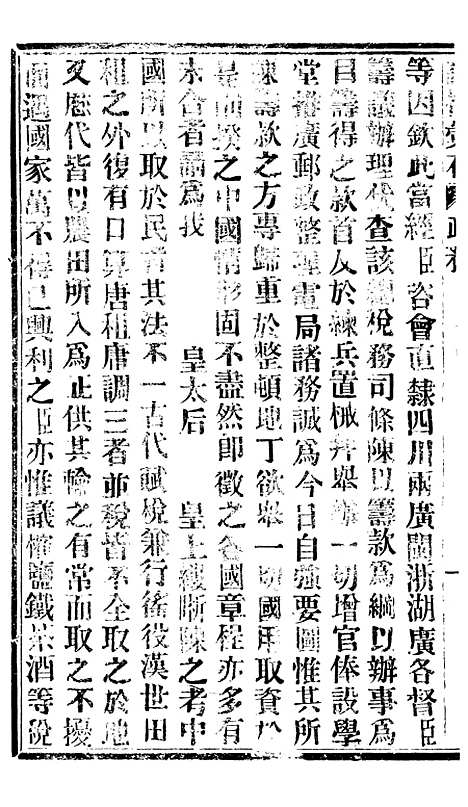 等因欽此當經臣咨會直隸四川兩廣閩浙湖廣各督臣
籌議辦理代查該總稅務司條陳以籌款為綱以辦事為
目籌得之款首及於練兵置械幷舉辦一切增官俸設學
堂番廣郵政整理電局諸務誠為今日自強要圖惟其所
陳籌款之方專歸重於整頓地丁欲舉一切國用取資於
是而揆之中國情形固不盡然卽徵之各國章程亦多有
未合者請為我 皇太后 皇上縷晰陳之考中
國所以取於民者其法不一古代賦稅兼行徭役漢世田
租之外復有口算唐租庸調三者並稅皆不全取之於地
又歷代皆以農田所入為正供其輸之有常而取之不擾
間遇國家萬不得已興利之臣亦惟議榷鹽鐵茶酒等稅